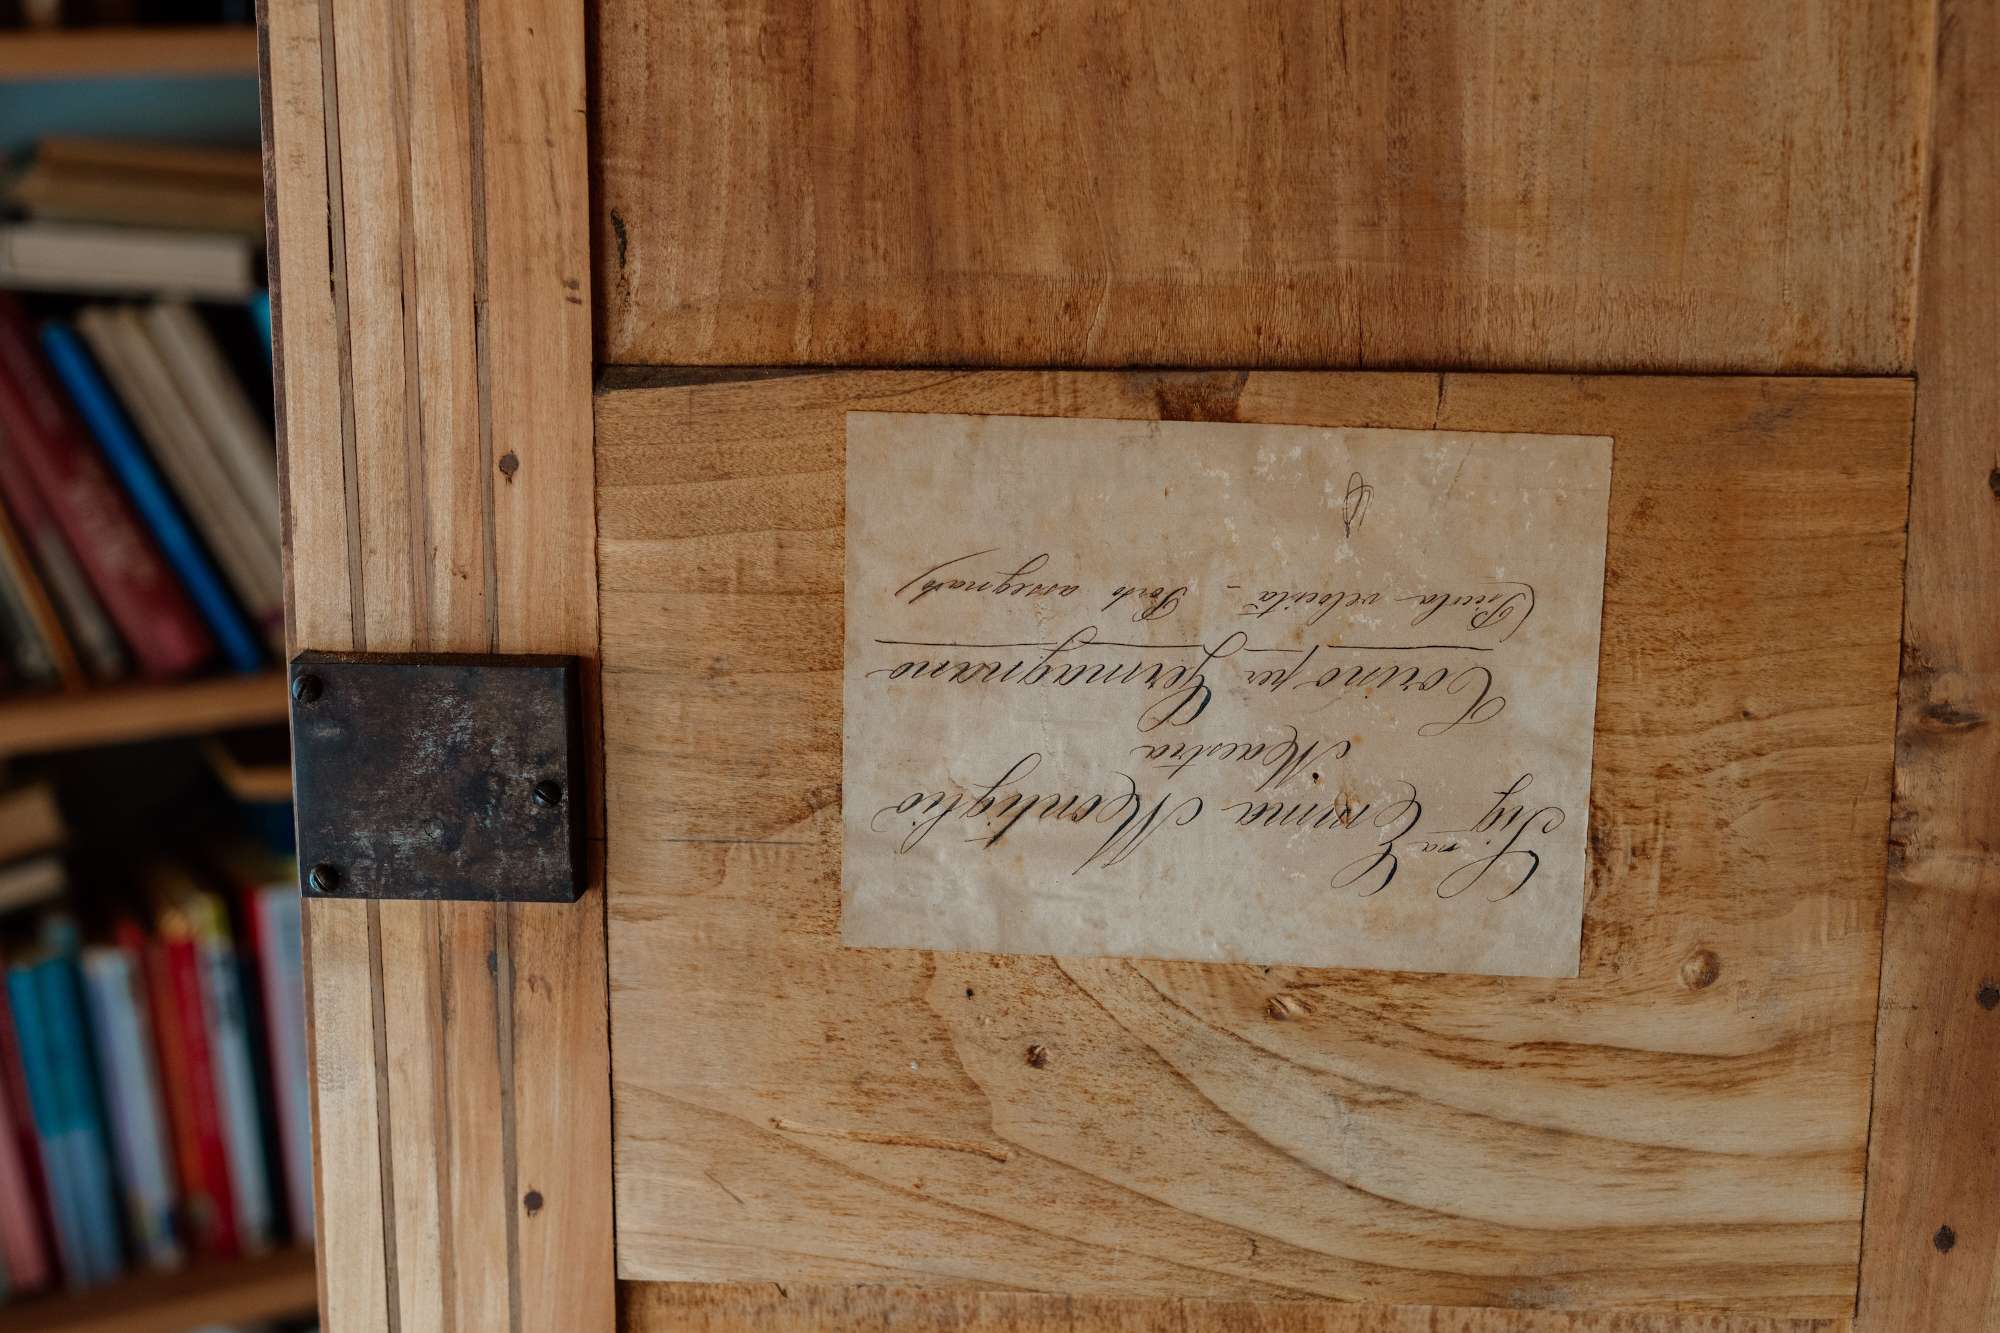 Sig.ra Emma Montiglio
Maestra
Torino per Germagnano
(Piccola velocità - Porto assegnato)